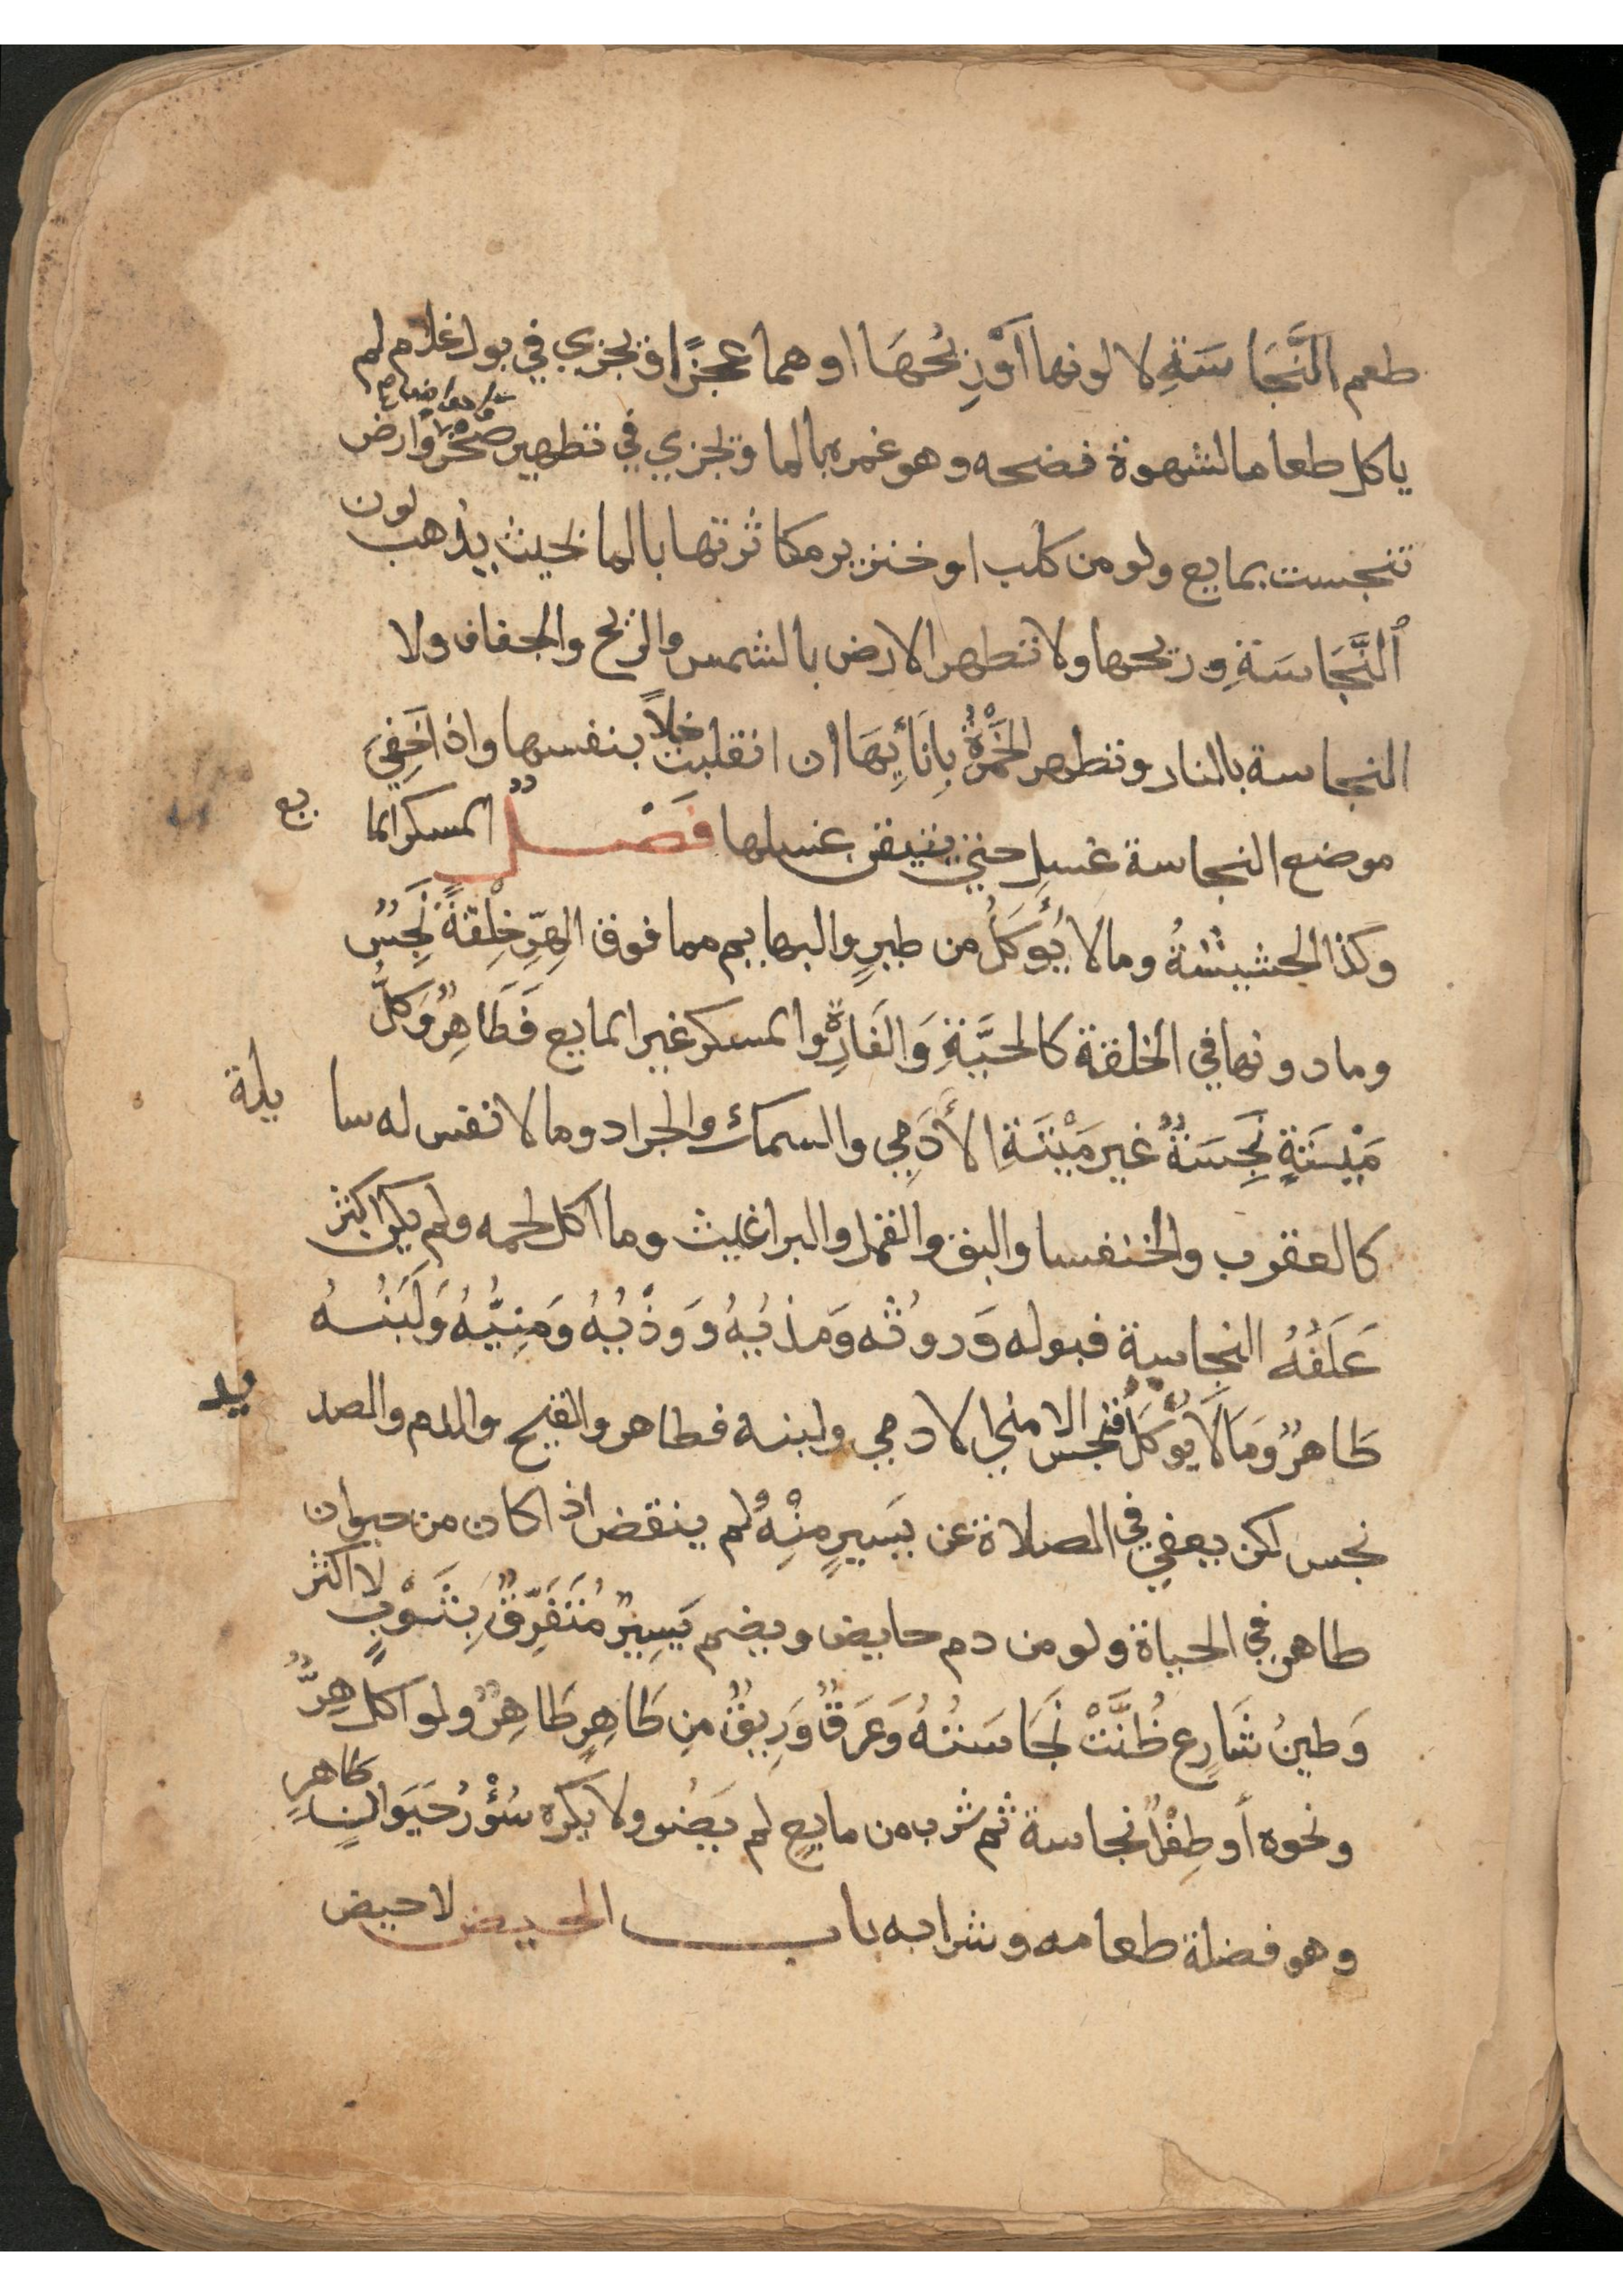 طعم النَّجَاسَةِ لا لونها أَوْ رِيْحُهَا او هما عجزًا ويجزي في بول غلام لم
ياكل طعاما لشهوة نضحه وهو غمره بالما ويجزي في تطهير صخر وارض
تنجست بمايع ولو من كلب او خنزير مكاثرتها بالما بحيث يذهب لون
النَّجَاسَةِ وريحها ولا تطهر الارض بالشمس والريح والجفاف ولا
النجاسة بالنار وتطهر الخَمْرَةُ بِاِنَائِهَا ان انقلبت خلاً بنفسها واذا خَفِيَ
موضع النجاسة غسل حتى يتيقن غسلها فَصْلٌ المسكر الما يع
وكذا الحشيشةُ وما لا يُؤكَلُ من طيرٍ والبهايم مما فوق الهِرِّ خِلْقةً نَجِسٌ
وما دونها في الخلقة كالحَيَّةِ وَالفَارِةِ والمسكر غير المايع فَطَاهِرٌ وَكلُّ
مَيْتَةٍ نَجِسَةٌ غير مَيْتَةِ الأَدَمِي والسمك والجراد وما لا نفس له سا يلة
كالعقرب والخنفسا والبق والقمل والبراغيث وما اكل لحمه ولم يكن اكثر
عَلَفُهُ النجاسة فبوله وَروثُه وَمَذيُهُ وَوَذْيُهُ وَمَنِيُّهُ وَلَبَنُهُ
طَاهرٌ وَمَالَا يُؤْكَلُ فنجس الا مني الادمي ولبنه فطاهر والقيح والدم والصد يد
نجس لكن يعفي في الصلاة عن يَسِيرٍ مِنْهُ لم ينقض اذا كان من حيوان
طاهر في الحياة ولو من دم حايض ويضم يَسِيرٌ مُتَفَرِّقٌ بِثَوْبٍ لا اكثر
وَطينُ شَارِعٍ ظُنَّتْ نَجَاسَتُهُ وَعَرَقٌ وَرِيقٌ مِن طَاهِرٍ طَاهِرٌ ولو اكل هِرٌّ
ونحوه أو طِفْلٌ نجاسة ثم شرب من مايعٍ لم يَضُر ولا يكره سُؤْرُ حَيَوانٍ طَاهرٍ
وهو فضلة طعامه وشرابه باب الحيض لا حيض